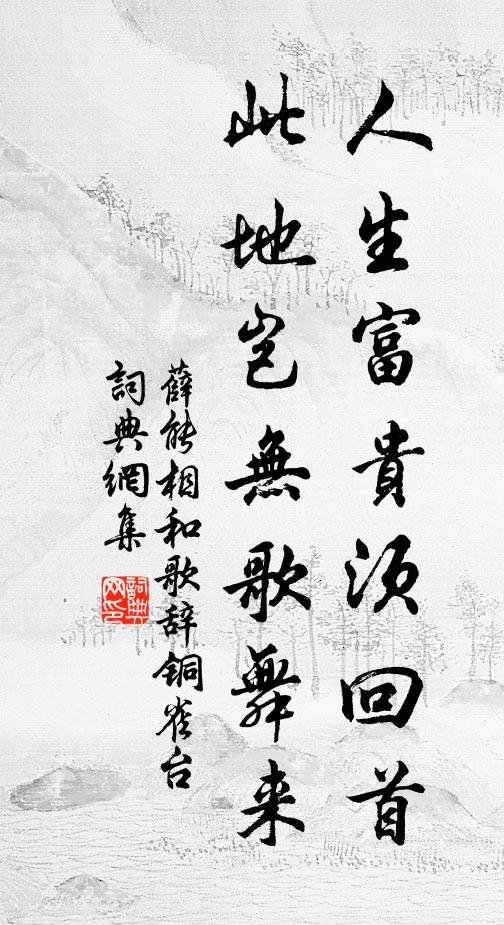 人生富貴須回首
此地岂無歌舞来
薛能相和歌辞銅雀台
詞典網集
詞典
网印